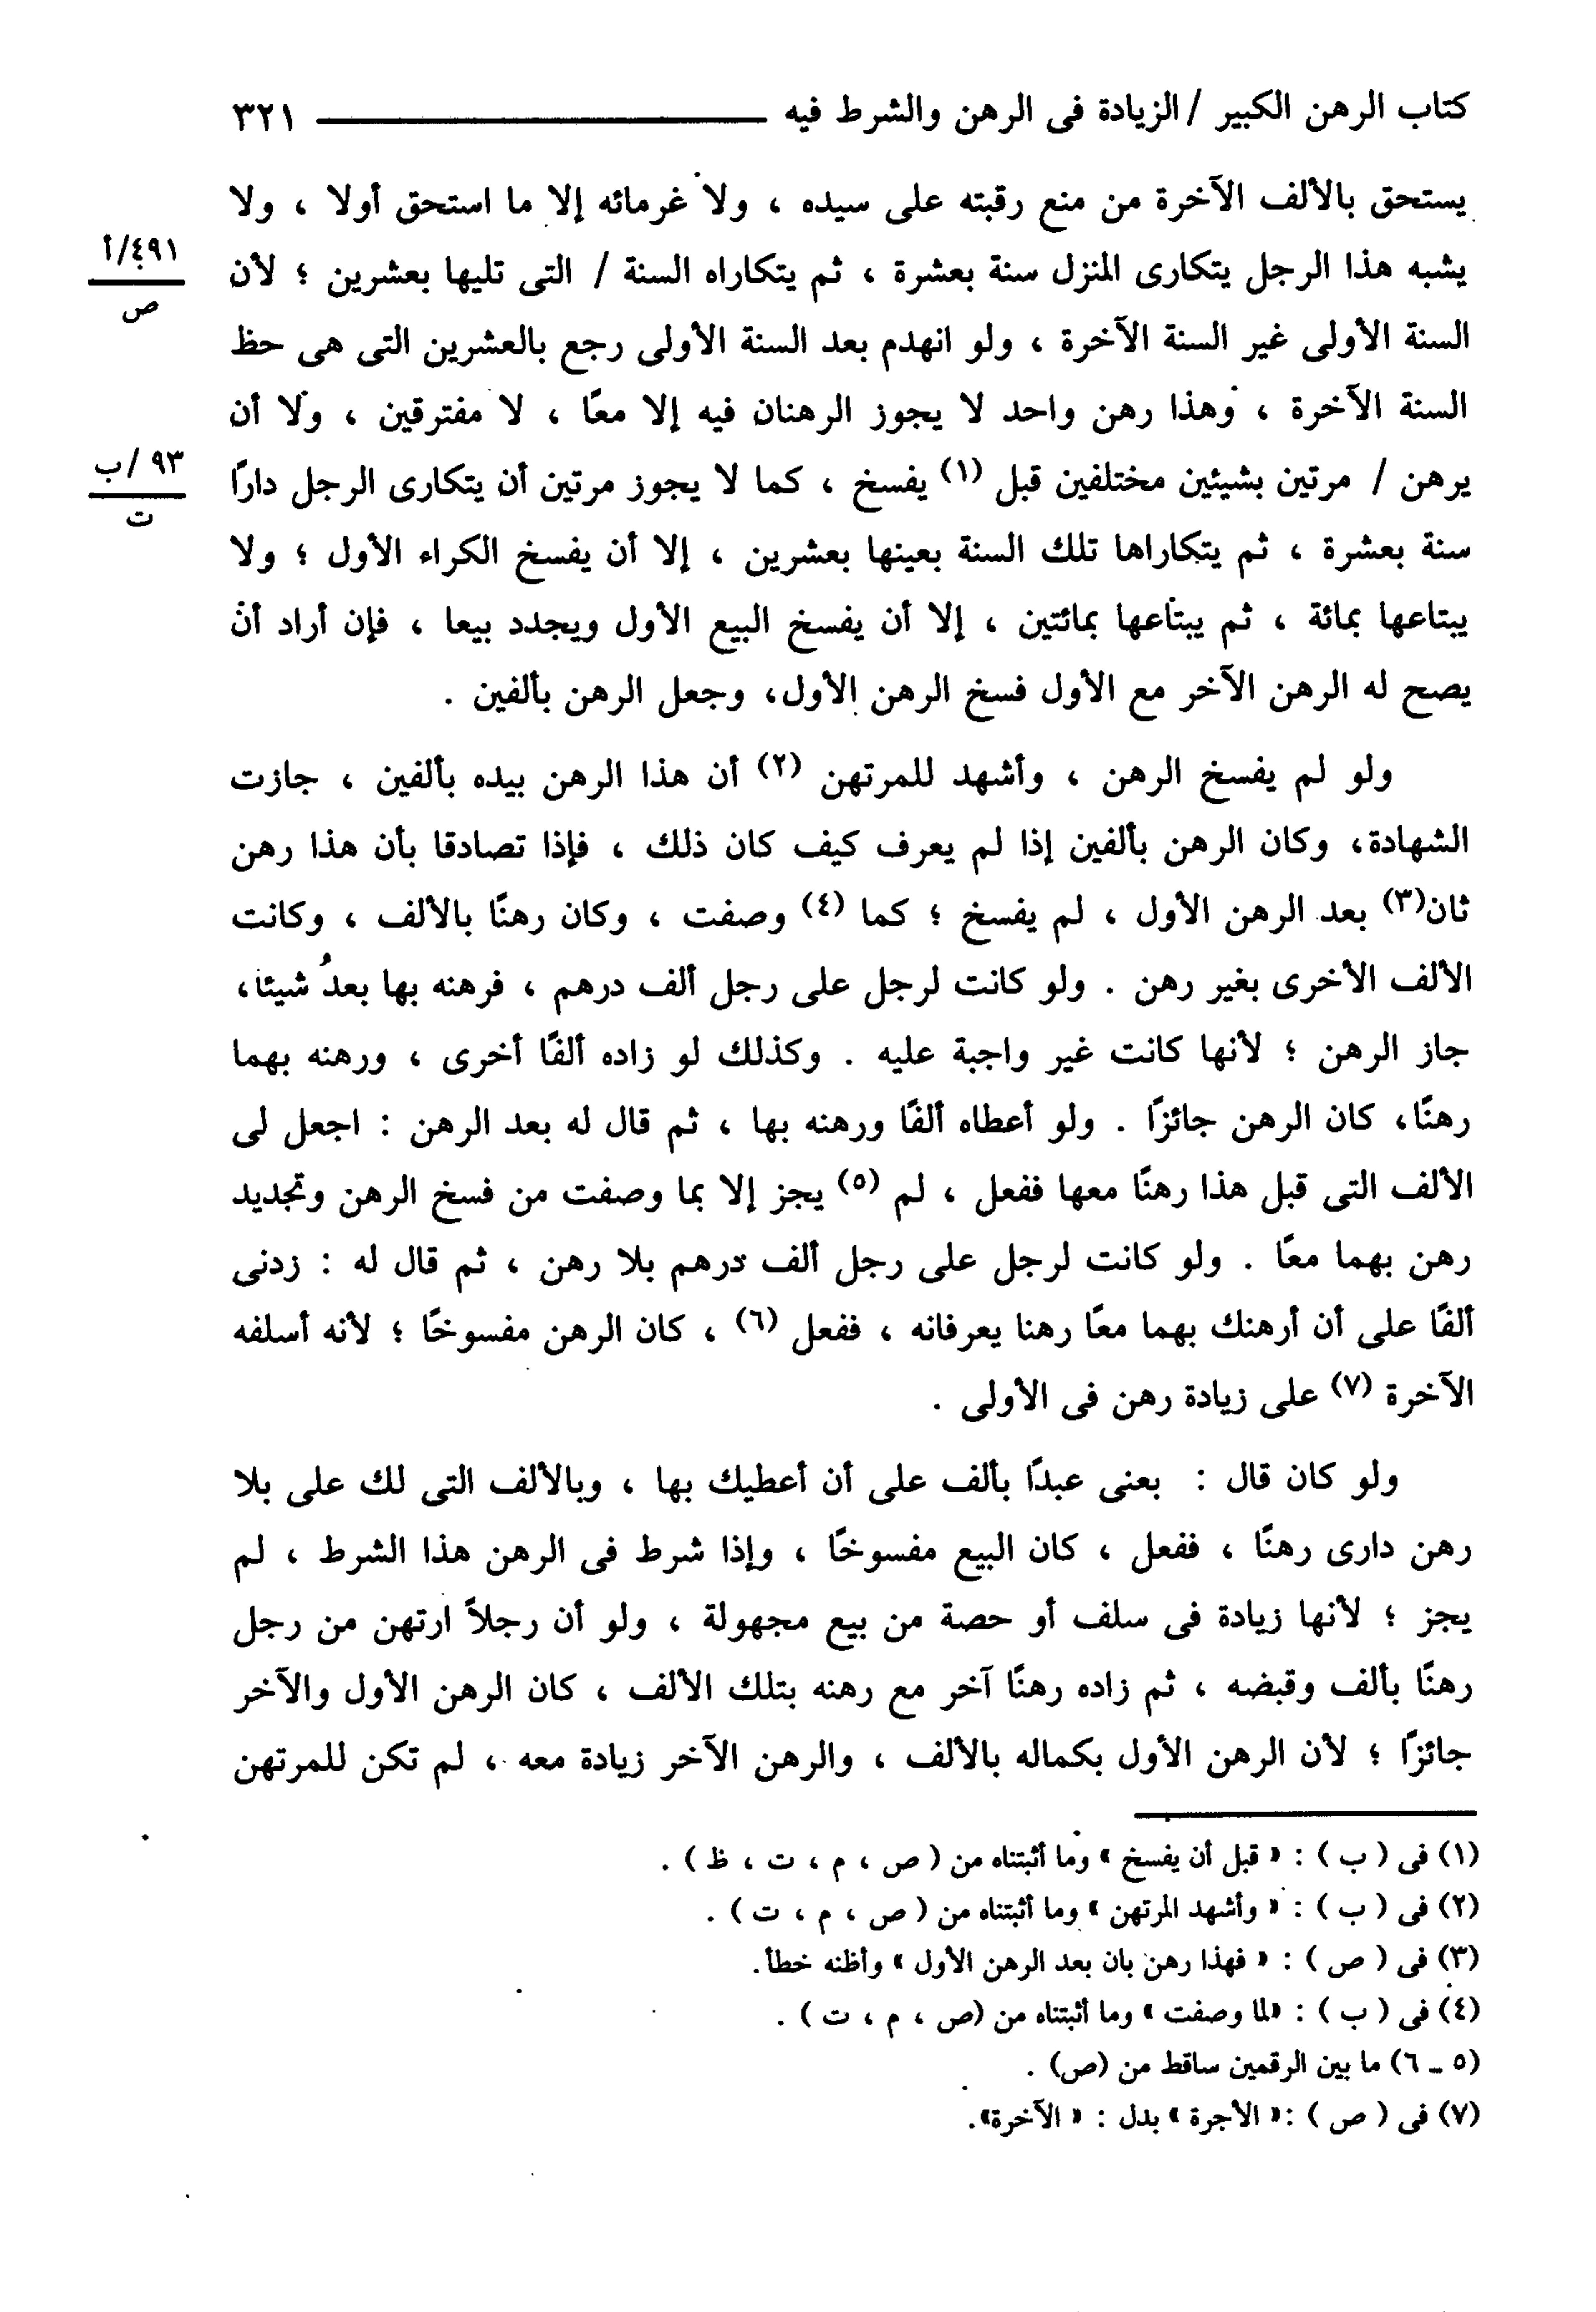 كتاب الرهن الكبير / الزيادة فى الرهن والشرط فيه ٣٢١
يستحق بالألف الآخرة من منع رقبته على سيده ، ولا غرمائه إلا ما استحق أولا ، ولا
يشبه هذا الرجل يتكارى المنزل سنة بعشرة ، ثم يتكاراه السنة / التى تليها بعشرين ؛ لأن
٤٩١/أ
ص
السنة الأولى غير السنة الآخرة ، ولو انهدم بعد السنة الأولى رجع بالعشرين التى هى حظ
السنة الآخرة ، وهذا رهن واحد لا يجوز الرهنان فيه إلا معًا ، لا مفترقين ، ولا أن
يرهن / مرتين بشيئين مختلفين قبل (١) يفسخ ، كما لا يجوز مرتين أن يتكارى الرجل دارًا
٩٣/ب
ت
سنة بعشرة ، ثم يتكاراها تلك السنة بعينها بعشرين ، إلا أن يفسخ الكراء الأول ؛ ولا
يبتاعها بمائة ، ثم يبتاعها بمائتين ، إلا أن يفسخ البيع الأول ويجدد بيعا ، فإن أراد أن
يصح له الرهن الآخر مع الأول فسخ الرهن الأول، وجعل الرهن بألفين .
ولو لم يفسخ الرهن ، وأشهد للمرتهن (٢) أن هذا الرهن بيده بألفين ، جازت
الشهادة، وكان الرهن بألفين إذا لم يعرف كيف كان ذلك ، فإذا تصادقا بأن هذا رهن
ثان(٣) بعد الرهن الأول ، لم يفسخ ؛ كما (٤) وصفت ، وكان رهنًا بالألف ، وكانت
الألف الأخرى بغير رهن . ولو كانت لرجل على رجل ألف درهم ، فرهنه بها بعدُ شيئا،
جاز الرهن ؛ لأنها كانت غير واجبة عليه . وكذلك لو زاده ألفًا أخرى ، ورهنه بهما
رهنًا، كان الرهن جائزًا . ولو أعطاه ألفًا ورهنه بها ، ثم قال له بعد الرهن : اجعل لى
الألف التى قبل هذا رهنًا معها ففعل ، لم (٥) يجز إلا بما وصفت من فسخ الرهن وتجديد
رهن بهما معًا . ولو كانت لرجل على رجل ألف درهم بلا رهن ، ثم قال له : زدنى
ألفًا على أن أرهنك بهما معًا رهنا يعرفانه ، ففعل (٦) ، كان الرهن مفسوخًا ؛ لأنه أسلفه
الآخرة (٧) على زيادة رهن فى الأولى .
ولو كان قال : بعنى عبدًا بألف على أن أعطيك بها ، وبالألف التى لك على بلا
رهن دارى رهنًا ، ففعل ، كان البيع مفسوخًا ، وإذا شرط فى الرهن هذا الشرط ، لم
يجز ؛ لأنها زيادة فى سلف أو حصة من بيع مجهولة ، ولو أن رجلاً ارتهن من رجل
رهنًا بألف وقبضه ، ثم زاده رهنًا آخر مع رهنه بتلك الألف ، كان الرهن الأول والآخر
جائزًا ؛ لأن الرهن الأول بكماله بالألف ، والرهن الآخر زيادة معه ، لم تكن للمرتهن
(١) فى ( ب ) : « قبل أن يفسخ » وما أثبتناه من ( ص ، م ، ت ، ظ ) .
(٢) فى ( ب ) : « وأشهد المرتهن » وما أثبتناه من ( ص ، م ، ت ) .
(٣) فى ( ص ) : « فهذا رهن بان بعد الرهن الأول » وأظنه خطأ.
(٤) فى ( ب ) : «لما وصفت » وما أثبتناه من (ص ، م ، ت ) .
(٥ ـ ٦) ما بين الرقمين ساقط من (ص) .
(٧) فى ( ص ) :« الأجرة » بدل : « الآخرة».